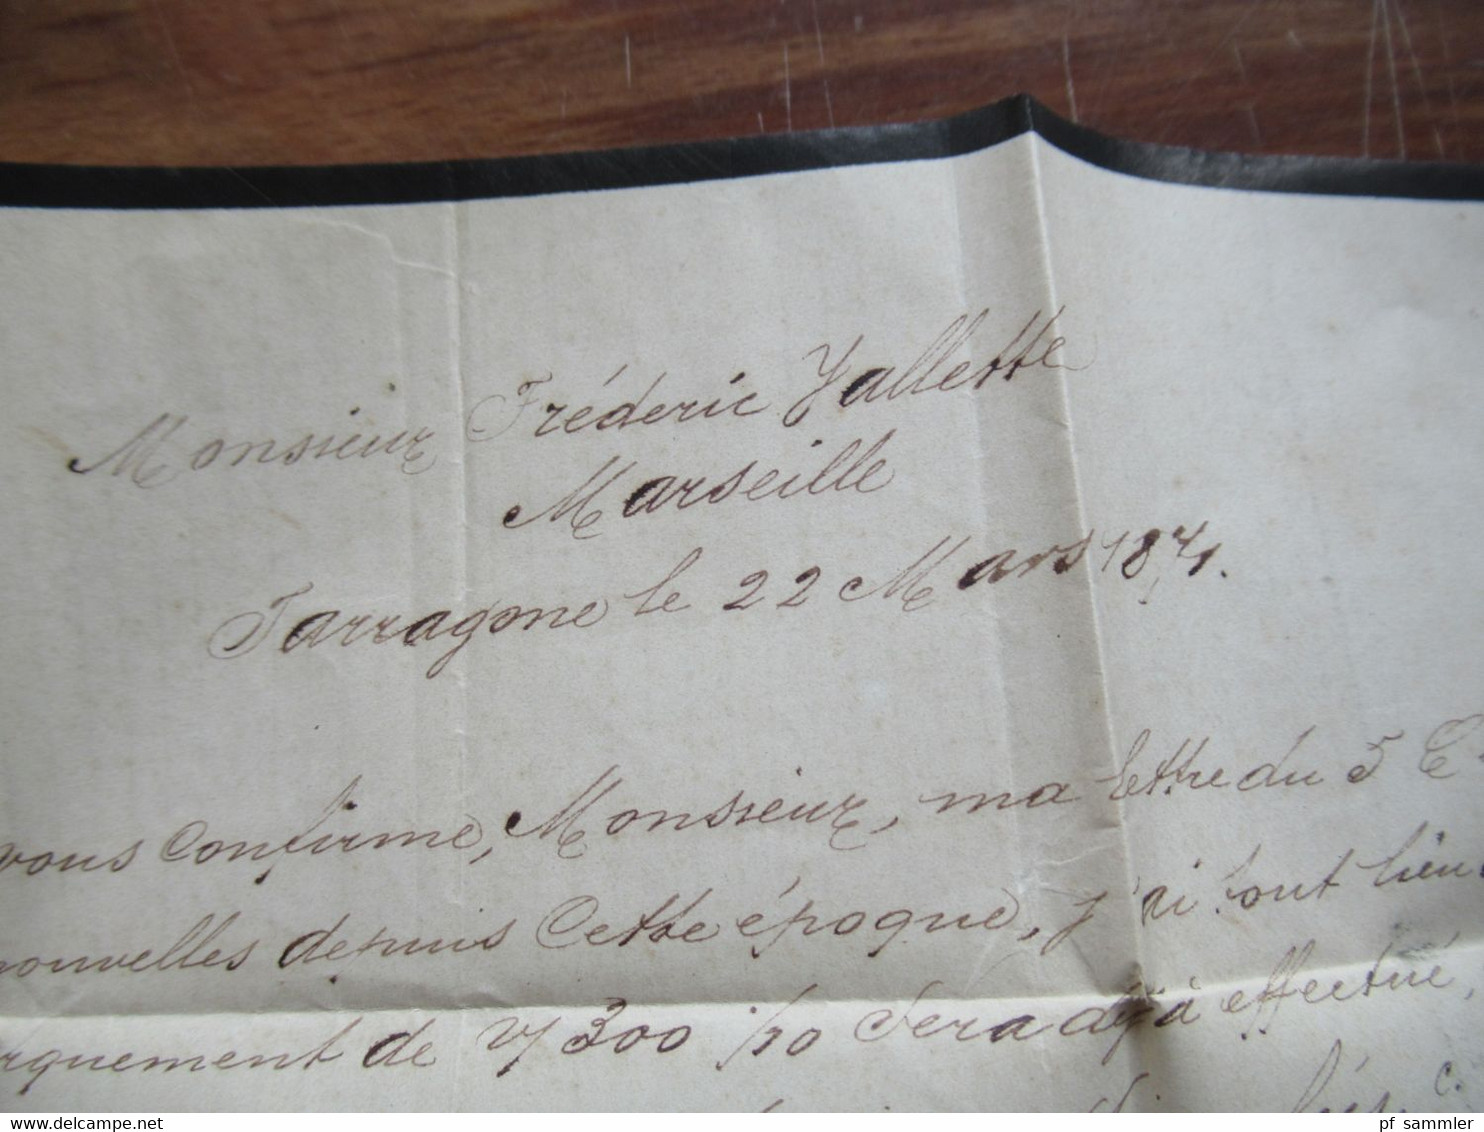 Monsieur Fréderic Vallette
Marseille
Tarragone le 22 Mars 1871.
vous Confirme, Monsieur, ma lettre du 5 Ct
nouvelles depuis Cette époque, j'ai tout lieu
rquement de 300 /20 Sera déjà effectué,
pf sammler